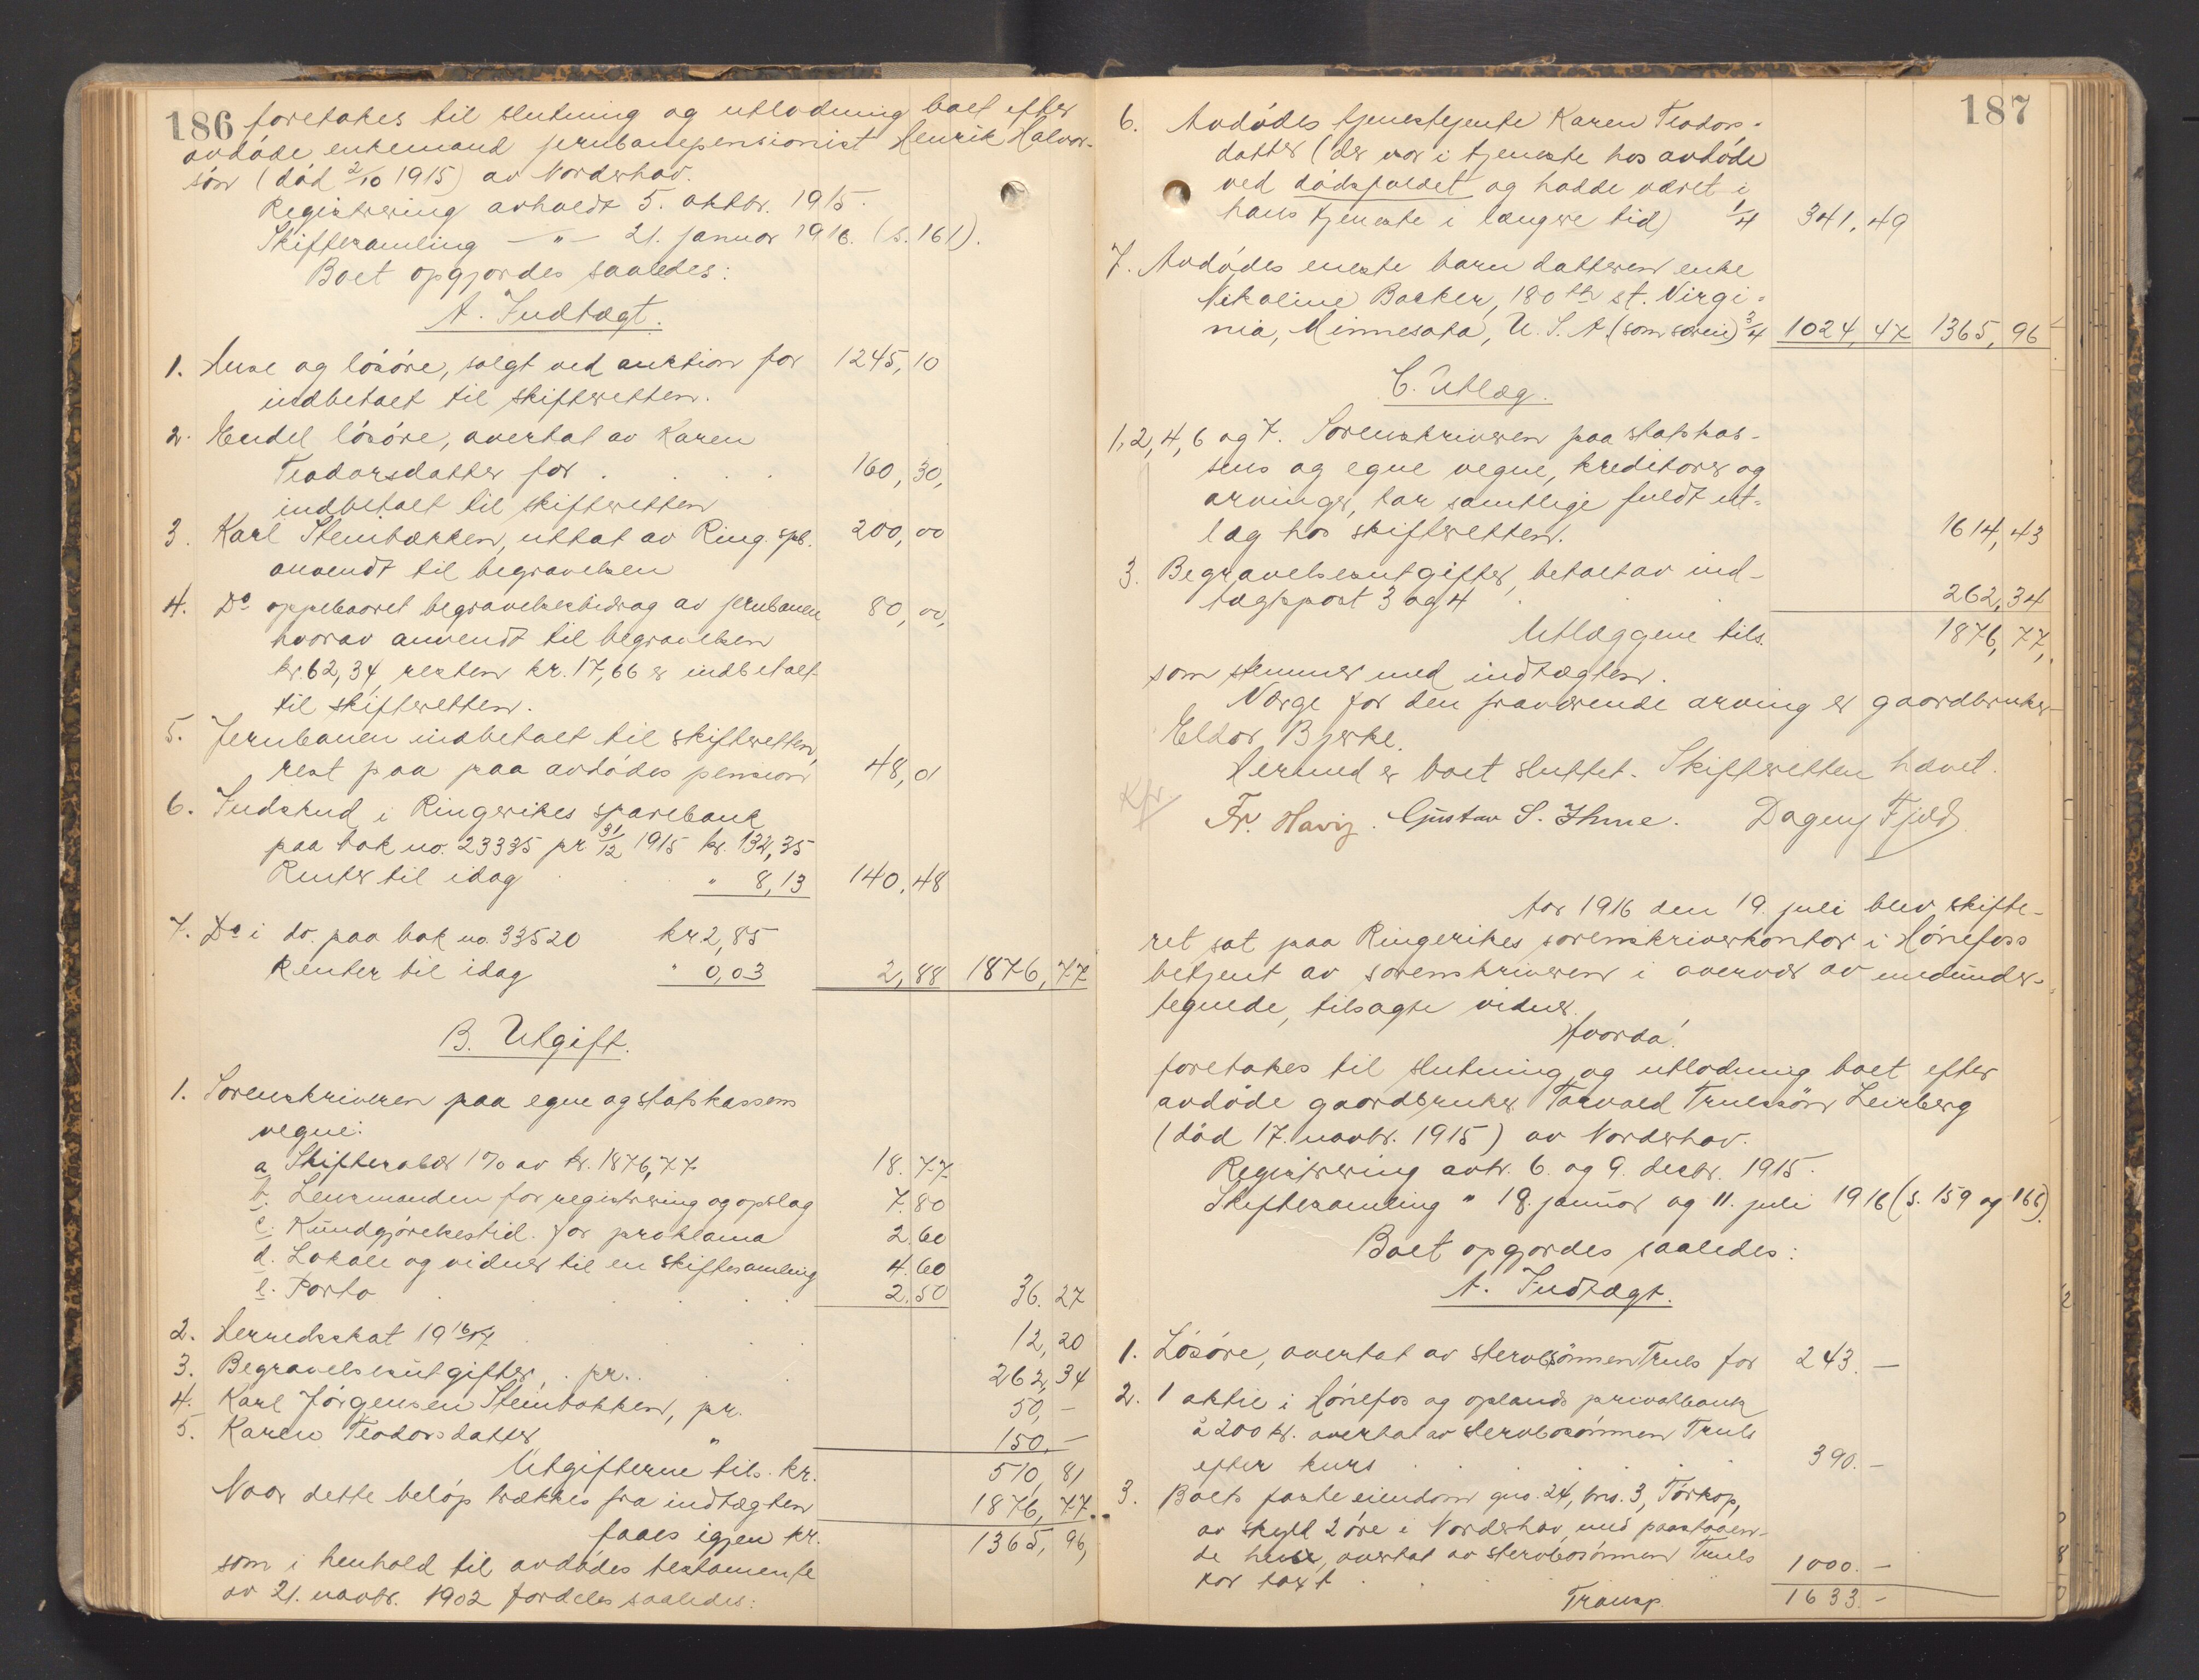 186
foretakes til slutning og utlodning boet efter
avdøde enkemand jernbanepensionist Henrik Halvor-
søn (død 2/10 1915) av Norderhov.
Registrering avholdt 5. oktbr. 1915.
Skiftesamling —"— 21. januar 1916. (s. 161).
Boet opgjordes saaledes:
A. Indtægt.
1. Huse og løsøre, solgt ved auktion for 1245,10
indbetalt til skifteretten.
2. Endel løsøre, overtat av Karen
Teodorsdatter for . . . . 160,30,
indbetalt til skifteretten
3. Karl Stenbakken, uttat av Ring. spb. 200,00
anvendt til begravelsen
4. Do oppebaaret begravelsesbidrag av jernbanen 80,00,
hvorav anvendt til begravelsen
kr. 62,34, resten kr. 17,66 er indbetalt
til skifteretten.
5. Jernbanen indbetalt til skifteretten,
rest paa paa avdødes pension 48,01
6. Indskud i Ringerikes sparebank
paa bok no. 23335 pr 31/12 1915 kr. 132,35
Renter til idag " 8,13 140,48
7. Do i do. paa bok no. 33520 kr 2,85
Renter til idag " 0,03 2,88 1876,77
B. Utgift.
1. Sorenskriveren paa egne og statskassens
vegne:
a. Skiftesalær 1% av kr. 1876,77 18.77
b. Lensmanden for registrering og opslag 7.80
c. Kundgjørelsestid. for proklama 2.60
d. Lokale og vidner til en skiftesamling 4.60
e. Porto . . . . 2.50 36.27
2. Herredsskat 1916/17 . . . 12,20
3. Begravelsesutgifter, pr. . . 262,34
4. Karl Jørgensen Stenbakken, pr. 50,—
5. Karen Teodorsdatter " 150.—
Utgifterne tils. kr. 510,81
Naar dette beløp trækkes fra indtægten 1876,77.
faaes igjen kr. 1365,96,
som i henhold til avdødes testamente
av 21. novbr. 1902 fordeles saaledes:
187
6. Avdødes tjenestejente Karen Teodors-
datter (der var i tjeneste hos avdøde
ved dødsfaldet og hadde været i
hans tjeneste i længere tid) 1/4 341,49
7. Avdødes eneste barn datteren enke
Nikoline Backer, 180th st. Virgi-
nia, Minnesota, U. S. A. (som særeie) 3/4 1024,47 1365,96
C. Utlæg.
1, 2, 4, 6 og 7. Sorenskriveren paa statskas-
sens og egne vegne, kreditorer og
arvinger, tar samtlige fuldt ut-
læg hos skifteretten. 1614,43
3. Begravelsesutgifter, betalt av ind-
tægtspost 3 og 4 . . 262,34
Utlæggene tils. 1876,77,
som stemmer med indtægten.
Værge for den fraværende arving er gaardbruker
Eldor Bjerke.
Hermed er boet sluttet. Skifteretten hævet.
Kfr.
Fr. Gustav S. Ihme. Dagny Fjeld
Aar 1916 den 19. juli blev skifte-
ret sat paa Ringerikes sorenskriverkontor i Hønefoss
betjent av sorenskriveren i overvær av medunder-
tegnede, tilsagte vidner.
Hvorda!
foretakes til slutning og utlodning boet efter
avdøde gaardbruker Torvald Trulssøn Leirberg
(død 17. novbr. 1915) av Norderhov.
Registrering avh. 6. og 9. decbr. 1915.
Skiftesamling " 18. januar og 11. juli 1916 (s. 159 og 166).
Boet opgjordes saaledes:
A. Indtægt.
1. Løsøre, overtat av stervbosønnen Truls for 243.—
2. 1 aktie i Hønefos og oplands privatbank
à 200 kr. overtat av stervbosønnen Truls
efter kurs . . . . 390.—
3. Boets faste eiendom gno. 24, bno. 3, Torkop,
av skyld 2 øre i Norderhov med paastaaen-
de huse, overtat av stervbosønnen Truls
for taxt . . . . 1000.—
Transp. 1633.—